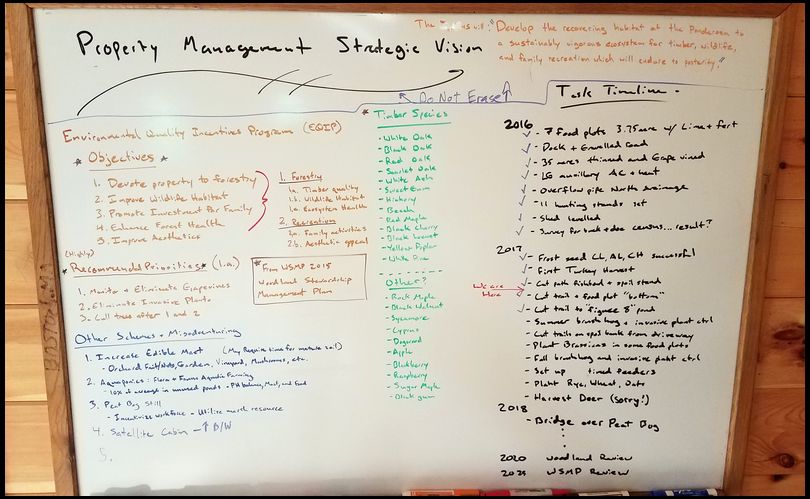 Property Management Strategic Vision
The
"Develop the recovering habitat at the Ponderosa to
a sustainably vigorous ecosystem for timber, wildlife,
and family recreation which will endure to posterity."
Do Not Erase
Environmental Quality Incentives Programs (EQIP)
* Objectives *
1. Devote property to forestry
2. Improve Wildlife Habitat
3. Promote Investment for Family
4. Enhance Forest Health
5. Improve Aesthetics
1. Forestry
1a. Timber quality
1b. Wildlife Habitat
1c. Ecosystem Health
2. Recreation
2a. Family activities
2b. Aesthetic appeal
(Highly)
* Recommended Priorities * (1.a.)
1. Monitor + Eliminate Grapevines
2. Eliminate Invasive Plants
3. Cull trees after 1 and 2
* From WSMP 2015
Woodland Stewardship
Management Plan
Other Schemes + Misadventuring
1. Increase Edible Mast (May Require limes for mature soil)
- Orchard Fruit/Nuts, Garden, Vineyard, Mushrooms, etc.
2. Aquaponics: Flora + Fauna Aquatic Farming
- 10% of acreage in unused ponds - PH balance, Meat, and food
3. Peat Bog Still
- Incentivize workforce - Utilize mast resource
4. Satellite Cabin - ↑ B/W
5.
* Timber Species
- White Oak
- Black Oak
- Red Oak
- Scarlet Oak
- White Ash
- Sweet Gum
- Hickory
- Beech
- Red Maple
- Black Cherry
- Black Locust
- Yellow Poplar
- White Pine
Other?
- Rock Maple
- Black Walnut
- Sycamore
- Cypress
- Dogwood
- Apple
- Blackberry
- Raspberry
- Sugar Maple
- Black gum
Task Timeline -
2016
✓ - 7 Food plots 3.75 acre w/ Lime + fert
✓ - Dock + Gravelled road
✓ - 35 acres thinned and Grape vined
✓ - LG auxiliary AC + heat
✓ - Overflow pipe North drainage
✓ - 11 hunting stands set
✓ - Shed levelled
✓ - Survey for buck + doe census... result?
2017
✓ - Frost seed CL, AL, CH successful
✓ - First Turkey Harvest
We are Here
✓ - Cut path fishbed + spoil stand
✓ - Cut trail + food plot "bottom"
✓ - Cut trail to "figure 8" pond
- Summer brushhog + invasive plant ctrl
- Cut trails on spoil bank from driveway
- Plant Brassicas in some food plots
- Fall brushhog and invasive plant ctrl
- Set up timed feeders
- Plant Rye, Wheat, Oats
- Harvest Deer (sorry!)
2018
- Bridge over Peat Bog
2020 Woodland Review
2025 WSMP Review